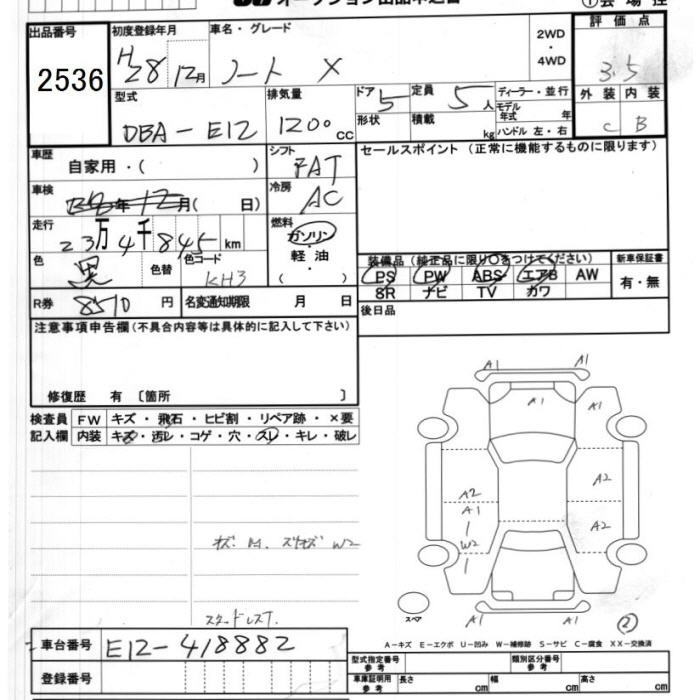 オークション出品申込書
①会場控
出品番号 2536
初度登録年月 H28 12月
車名・グレード ノート X
2WD・4WD
評価点 3.5
型式 DBA-E12
排気量 1200 cc
ドア 5
形状
定員 5人
積載 kg
ディーラー・並行
モデル年式 年
ハンドル 左・右
外装 C
内装 B
車歴 自家用・( )
シフト FAT
セールスポイント (正常に機能するものに限ります)
車検 年 12月( 日)
冷房 AC
走行 23万4千845 km
燃料 ガソリン・軽油・( )
色 黒
色替
色コード KH3
装備品 (純正品に限り○をつけてください)
新車保証書
PS PW ABS エアB AW
SR ナビ TV カワ
有・無
R券 8570円
名変通知期限 月 日
後日品
注意事項申告欄(不具合内容等は具体的に記入して下さい)
修復歴 有 〔箇所 〕
検査員記入欄
FW キズ・飛石・ヒビ割・リペア跡・×要
内装 キズ・汚レ・コゲ・穴・スレ・キレ・破レ
A1 A1
A1 A1
A2 A2
A1
W2 A2
W2
スタッドレスT.
A1 A1
スペア
②
車台番号 E12-418882
登録番号
A-キズ E-エクボ U-凹み W-補修跡 S-サビ C-腐食 XX-交換済
型式指定番号 参考
類別区分番号 参考
車庫証明用 参考 長さ cm 幅 cm 高さ cm